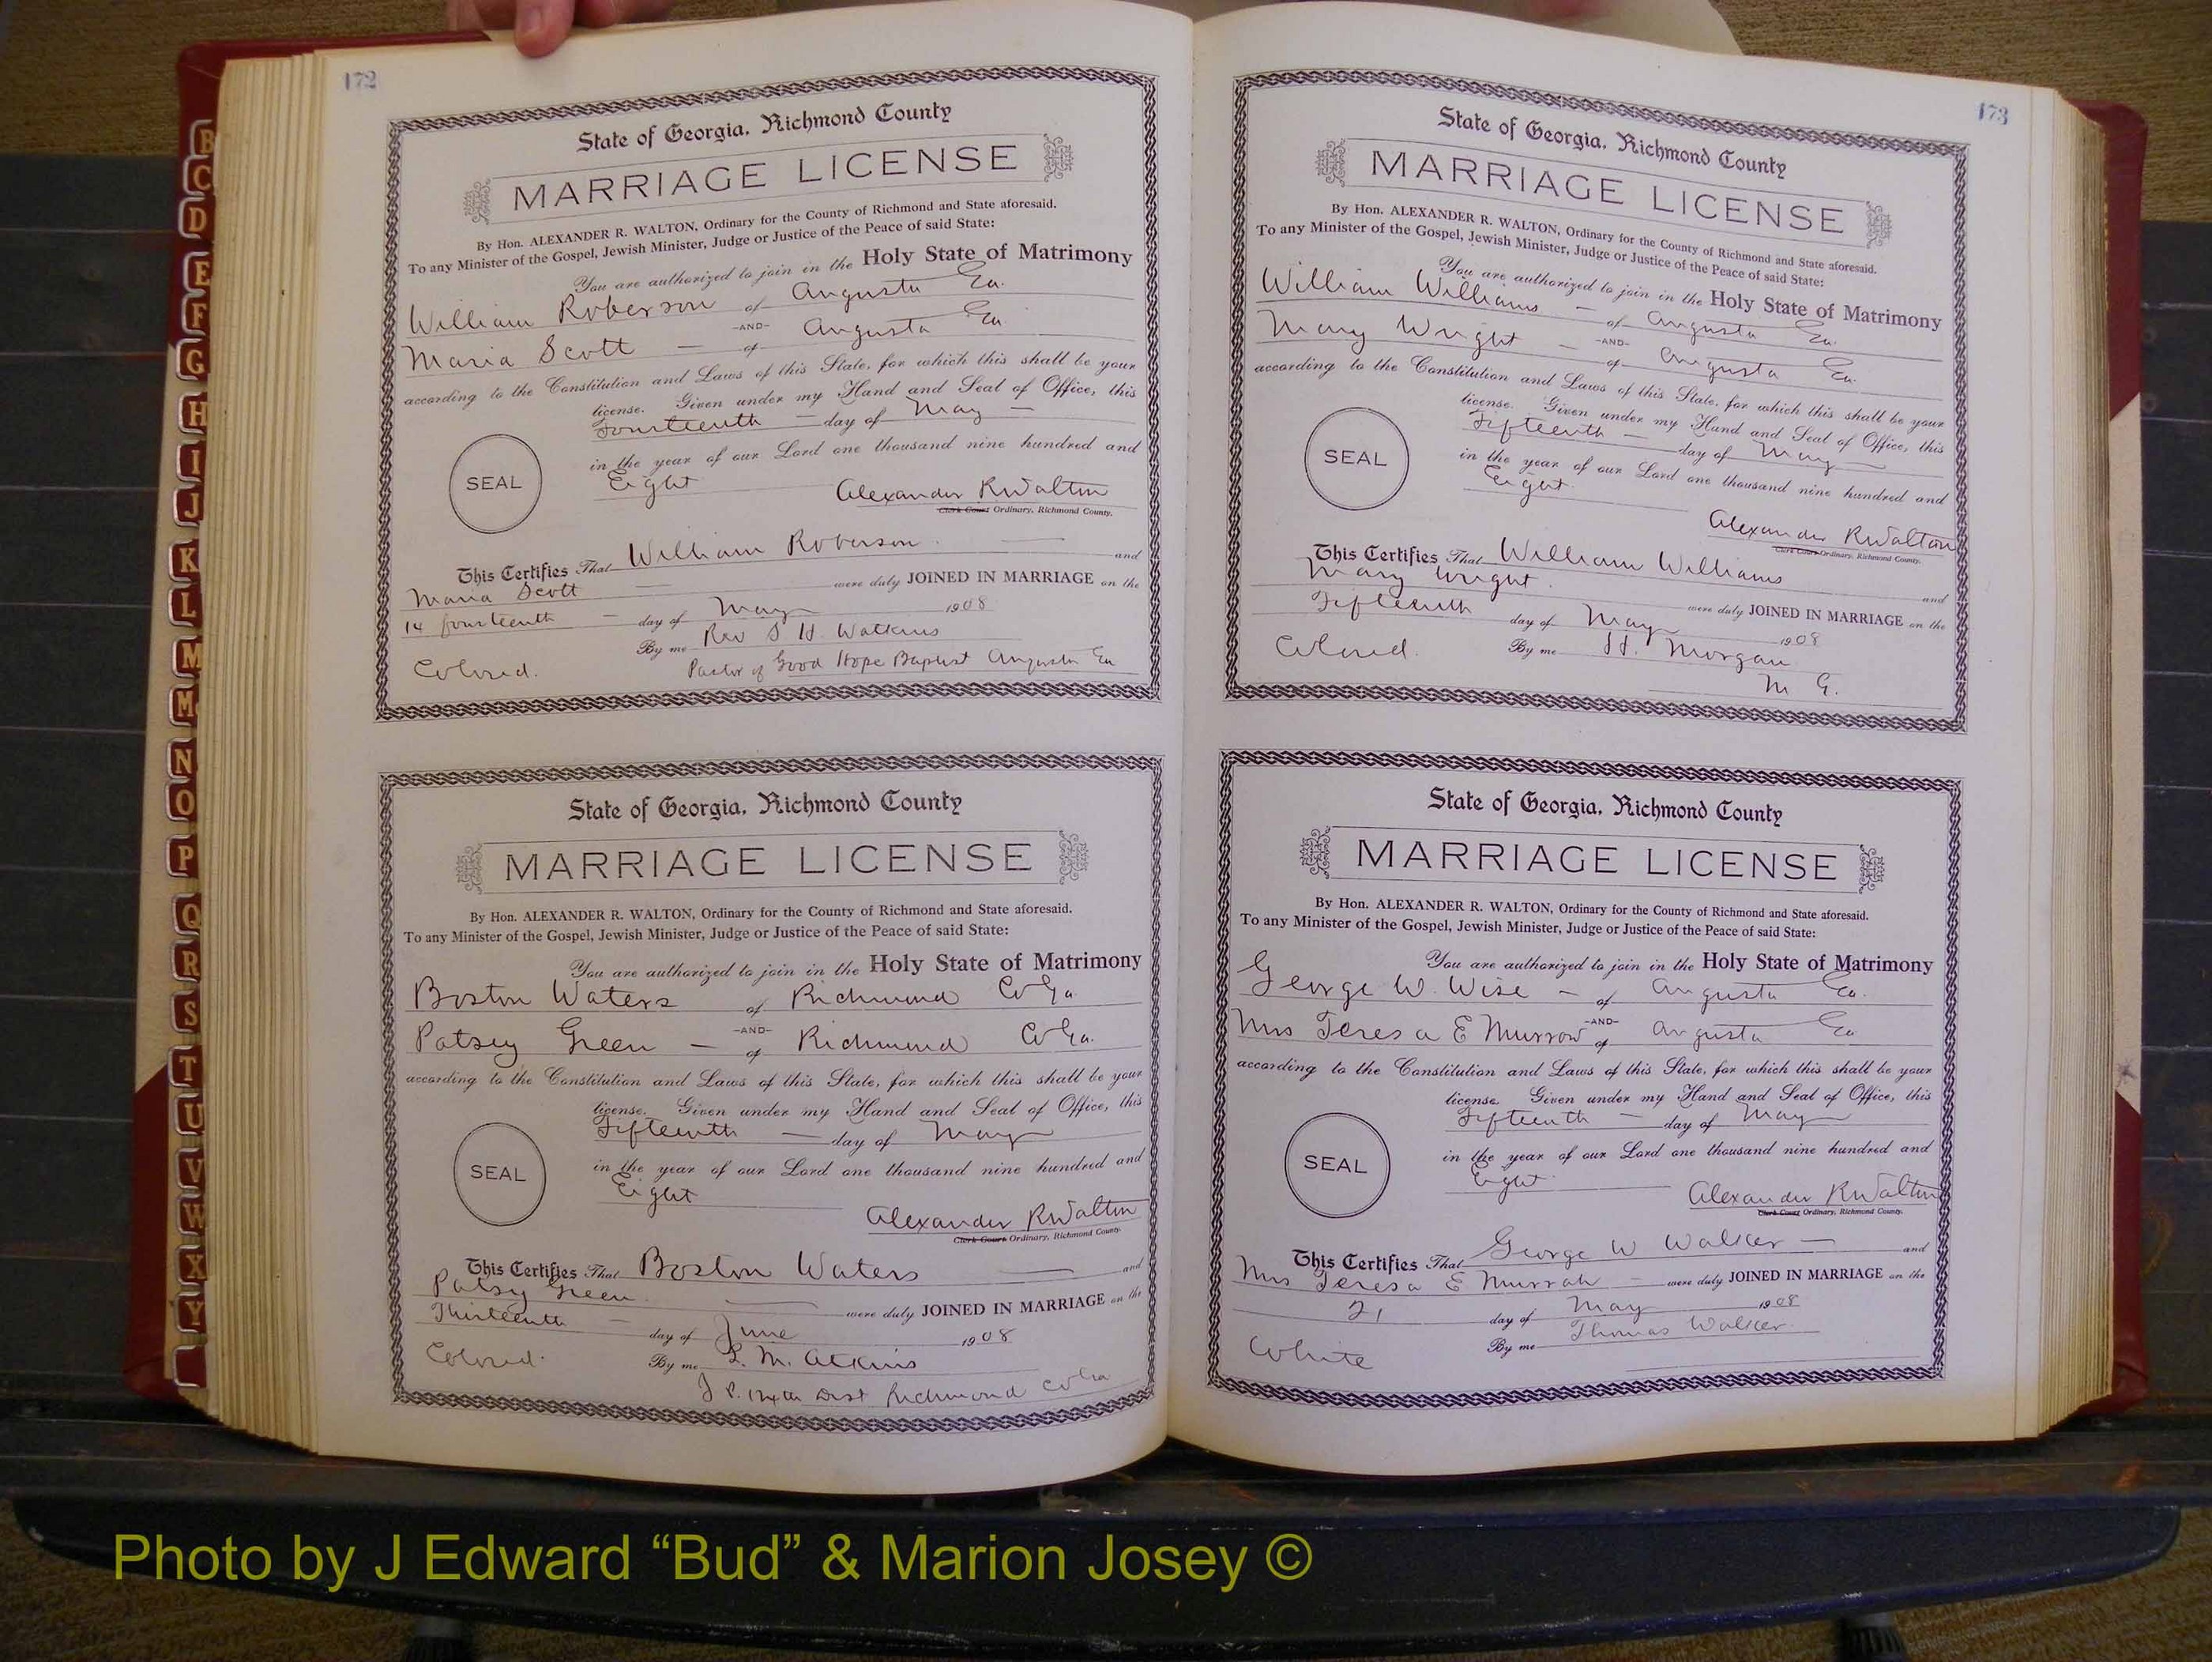 172
State of Georgia, Richmond County
MARRIAGE LICENSE
By Hon. ALEXANDER R. WALTON, Ordinary for the County of Richmond and State aforesaid.
To any Minister of the Gospel, Jewish Minister, Judge or Justice of the Peace of said State:
You are authorized to join in the Holy State of Matrimony
William Roberson of Augusta Ga.
-AND-
Maria Scott — of Augusta Ga
according to the Constitution and Laws of this State, for which this shall be your
license. Given under my Hand and Seal of Office, this
Fourteenth — day of May —
in the year of our Lord one thousand nine hundred and
SEAL
Eight
Alexander R Walton
Clerk Court Ordinary, Richmond County.
This Certifies That William Roberson. — and
Maria Scott — were duly JOINED IN MARRIAGE on the
14 fourteenth — day of May 1908
By me Rev S H Watkins
Colored. Pastor of Good Hope Baptist Augusta Ga
State of Georgia, Richmond County
MARRIAGE LICENSE
By Hon. ALEXANDER R. WALTON, Ordinary for the County of Richmond and State aforesaid.
To any Minister of the Gospel, Jewish Minister, Judge or Justice of the Peace of said State:
You are authorized to join in the Holy State of Matrimony
Boston Waters of Richmond Co Ga
-AND-
Patsey Green — of Richmond Co Ga.
according to the Constitution and Laws of this State, for which this shall be your
license. Given under my Hand and Seal of Office, this
Fifteenth — day of May
in the year of our Lord one thousand nine hundred and
SEAL
Eight
Alexander R Walton
Clerk Court Ordinary, Richmond County.
This Certifies That Boston Waters — and
Patsy Green — were duly JOINED IN MARRIAGE on the
Thirteenth — day of June 1908
Colored. By me L. M. Atkins
J P. Dist Richmond Co Ga
173
State of Georgia, Richmond County
MARRIAGE LICENSE
By Hon. ALEXANDER R. WALTON, Ordinary for the County of Richmond and State aforesaid.
To any Minister of the Gospel, Jewish Minister, Judge or Justice of the Peace of said State:
You are authorized to join in the Holy State of Matrimony
William Williams — of Augusta Ga
-AND-
Mary Wright — of Augusta Ga.
according to the Constitution and Laws of this State, for which this shall be your
license. Given under my Hand and Seal of Office, this
Fifteenth — day of May
in the year of our Lord one thousand nine hundred and
SEAL
Eight
Alexander R Walton
Clerk Court Ordinary, Richmond County.
This Certifies That William Williams and
Mary Wright. were duly JOINED IN MARRIAGE on the
Fifteenth day of May 1908
Colored. By me H. Morgan
M G.
State of Georgia, Richmond County
MARRIAGE LICENSE
By Hon. ALEXANDER R. WALTON, Ordinary for the County of Richmond and State aforesaid.
To any Minister of the Gospel, Jewish Minister, Judge or Justice of the Peace of said State:
You are authorized to join in the Holy State of Matrimony
George W. Wise — of Augusta Ga.
-AND-
Mrs Teresa E Murrow of Augusta Ga
according to the Constitution and Laws of this State, for which this shall be your
license. Given under my Hand and Seal of Office, this
Fifteenth — day of May
in the year of our Lord one thousand nine hundred and
SEAL
Eight
Alexander R Walton
Clerk Court Ordinary, Richmond County.
This Certifies That George W Walker — and
Mrs Teresa E Murrah — were duly JOINED IN MARRIAGE on the
21 day of May 1908
White By me Thomas Walker
B
C
D
E
F
G
H
I
J
K
L
M
M
N
O
P
Q
R
S
T
U
V
W
X
Y
Photo by J Edward “Bud” & Marion Josey ©